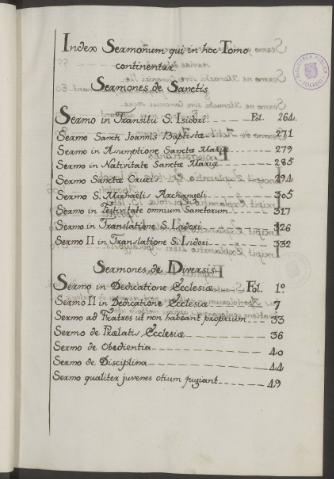 Index Sermonum qui in hoc Tomo
continentur
Sermones de Sanctis
Sermo in Transitu S. Isidori Fol. 264.
Sermo Sancti Joannis Baptistæ 271
Sermo in Asumptione Sanctæ Mariæ 279
Sermo in Nativitate Sanctæ Mariæ 285
Sermo Sanctæ Crucis 294
Sermo S. Michaelis Archangeli 305
Sermo in Festivitate omnium Sanctorum 317
Sermo in Translatione S. Isidori 326
Sermo II in Translatione S. Isidori 332
Sermones de Diversis
Sermo in Dedicatione Ecclesiæ Fol. 1º
Sermo II in Dedicatione Ecclesiæ 7
Sermo ad Fratres ut non habeant proprium 33
Sermo de Prælatis Ecclesiæ 36
Sermo de Obedientia 40
Sermo de Disciplina 44
Sermo qualiter juvenes otium fugiant 49